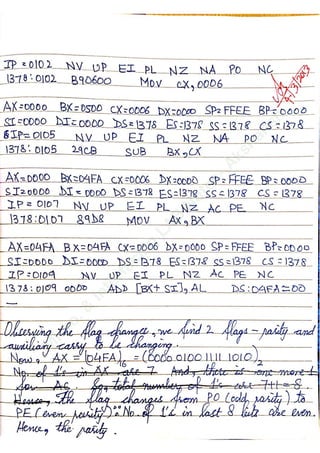 IP=0102 NV UP EI PL NZ NA PO NC
1378:0102 B90600 MOV CX,0006
AX=0000 BX=0500 CX=0006 DX=0000 SP=FFEE BP=0000
SI=0000 DI=0000 DS=1378 ES=1378 SS=1378 CS=1378
IP=0105 NV UP EI PL NZ NA PO NC
1378:0105 29CB SUB BX,CX
AX=0000 BX=04FA CX=0006 DX=0000 SP=FFEE BP=0000
SI=0000 DI=0000 DS=1378 ES=1378 SS=1378 CS=1378
IP=0107 NV UP EI PL NZ AC PE NC
1378:0107 89D8 MOV AX,BX
AX=04FA BX=04FA CX=0006 DX=0000 SP=FFEE BP=0000
SI=0000 DI=0000 DS=1378 ES=1378 SS=1378 CS=1378
IP=0109 NV UP EI PL NZ AC PE NC
1378:0109 0000 ADD [BX+SI],AL DS:04FA=00
-
Observing the flag changes, we find 2 flags - parity and
auxiliary carry to be changing.
Now, AX = (04FA)16 = (0000 0100 1111 1010)2
No. of 1's in AX are 7 And, there is one more 1
for AC. So, total number of 1's are 7+1=8.
Hence, the flag changes from PO (odd parity) to
PE (even parity) ∵ No. of 1's in last 8 bits are even.
Hence, the parity.